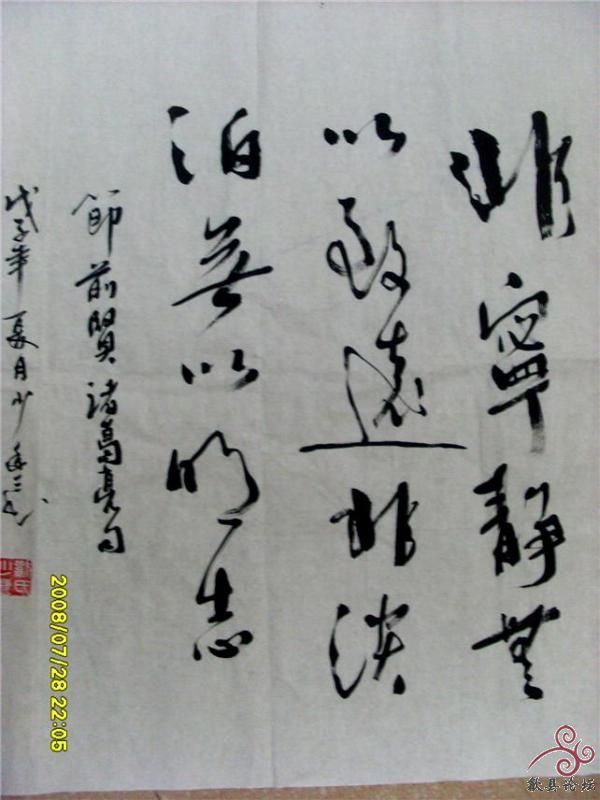 非寧静無
以致遠非淡
泊無以明志
節前賢諸葛亮句
戊子年夏月少
2008/07/28 22:05
歙县论坛